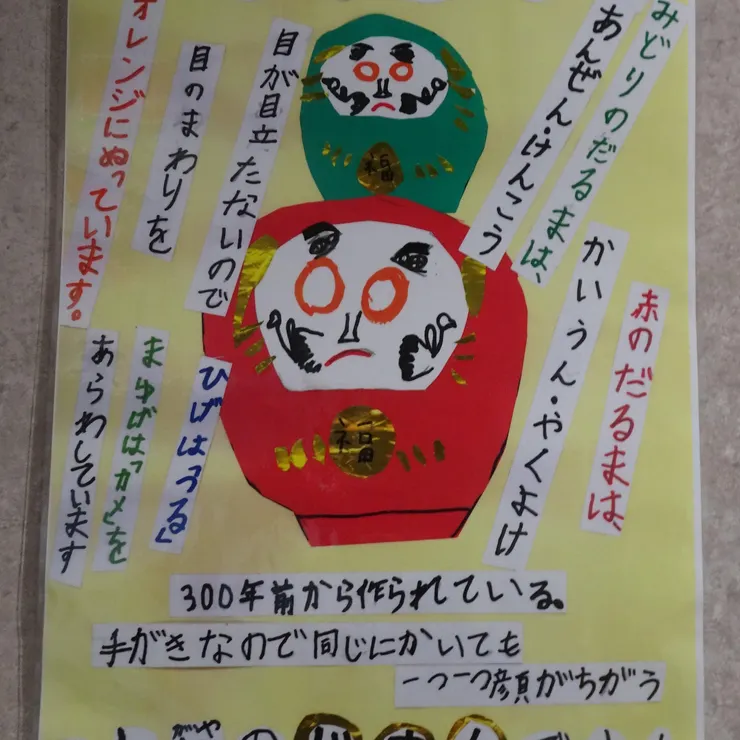 みどりのだるまは、
あんぜん・けんこう
赤のだるまは、
かいうん・やくよけ
目が目立たないので
目のまわりを
オレンジにぬっています。
ひげは「つる」
まゆげは「カメ」を
あらわしています
福
福
300年前から作られている。
手がきなので同じにかいても
一つ一つ顔がちがう